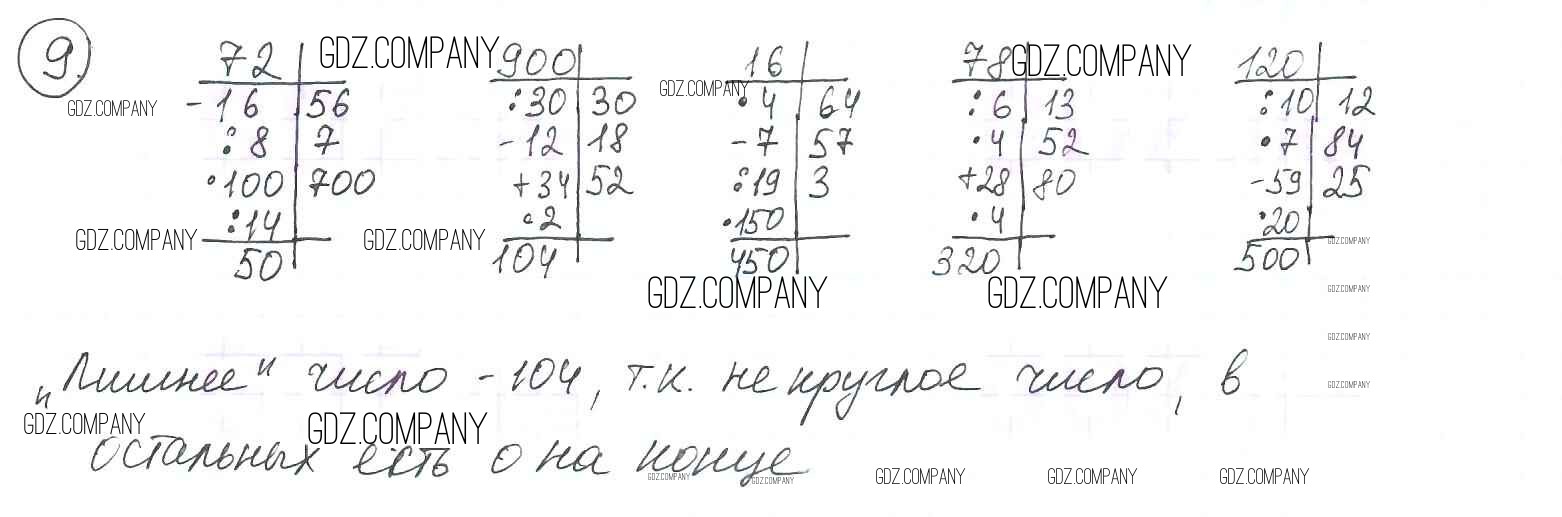 9.
72 GDZ.COMPANY 900 16 78 GDZ.COMPANY 120
GDZ.COMPANY - 16 56 : 30 30 GDZ.COMPANY · 4 64 : 6 13 : 10 12
: 8 7 - 12 18 - 7 57 · 4 52 · 7 84
· 100 700 + 34 52 : 19 3 + 28 80 - 59 25
GDZ.COMPANY : 14 GDZ.COMPANY · 2 · 150 · 4 · 20 GDZ.COMPANY
50 104 450 320 500
GDZ.COMPANY GDZ.COMPANY GDZ.COMPANY
GDZ.COMPANY
„Лишнее" число - 104, т.к. не круглое число, в GDZ.COMPANY
GDZ.COMPANY GDZ.COMPANY
остальных есть 0 на конце
GDZ.COMPANY GDZ.COMPANY GDZ.COMPANY GDZ.COMPANY GDZ.COMPANY